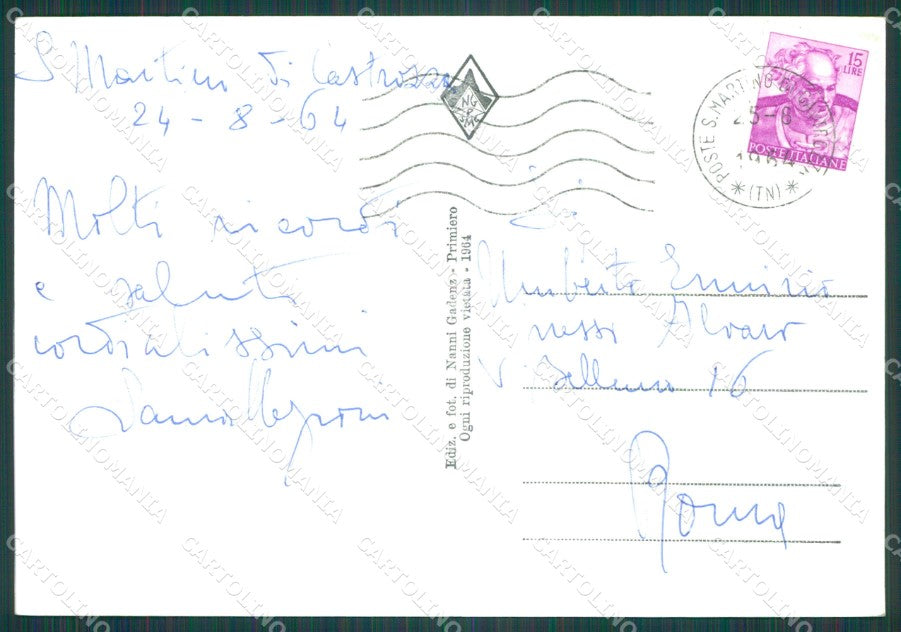 S. Martino di Castrozza
24-8-64
Molti ricordi
e saluti
cordialissimi
NG
Ediz. e fot. di Nanni Gadenz - Primiero
Ogni riproduzione vietata - 1964
15
LIRE
POSTE ITALIANE
POSTE S. MARTINO
1964
*(TN)*
Umberto Erminio
nessi Alvaro
V. 16
Roma
CARTOLINOMANIA